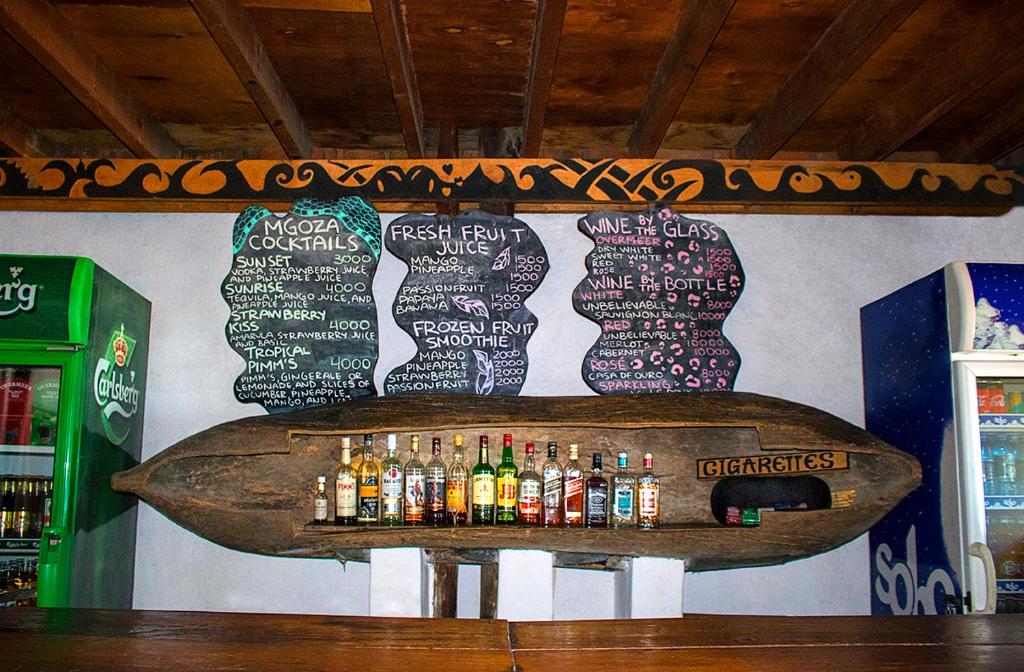 erg
Carlsberg
MGOZA
COCKTAILS
SUNSET 3000
VODKA, STRAWBERRY JUICE
AND PINEAPPLE JUICE
SUNRISE 4000
TEQUILA, MANGO JUICE, AND
PINEAPPLE JUICE
STRAWBERRY
KISS 4000
AMARULA, STRAWBERRY JUICE
AND BASIL
TROPICAL
PIMM'S 4000
PIMM'S, GINGERALE OR
LEMONADE AND SLICES OF
CUCUMBER, PINEAPPLE,
MANGO, AND
FRESH FRUIT
JUICE
MANGO 1500
PINEAPPLE 1500
PASSIONFRUIT 1500
PAPAYA 1500
BANANA 1500
FROZEN FRUIT
SMOOTHIE
MANGO 2000
PINEAPPLE 2000
STRAWBERRY 2000
PASSIONFRUIT 2000
WINE BY THE GLASS
OVERMEER
DRY WHITE 1500
SWEET WHITE 1500
RED 1500
ROSE 1500
WINE BY THE BOTTLE
WHITE
UNBELIEVABLE 8000
SAUVIGNON BLANC 10000
RED
UNBELIEVABLE 8000
MERLOT 10000
CABERNET 10000
ROSÉ
CASA DE OURO 8000
SPARKLING
CIGARETTES
PIMM'S
J&B
sobo